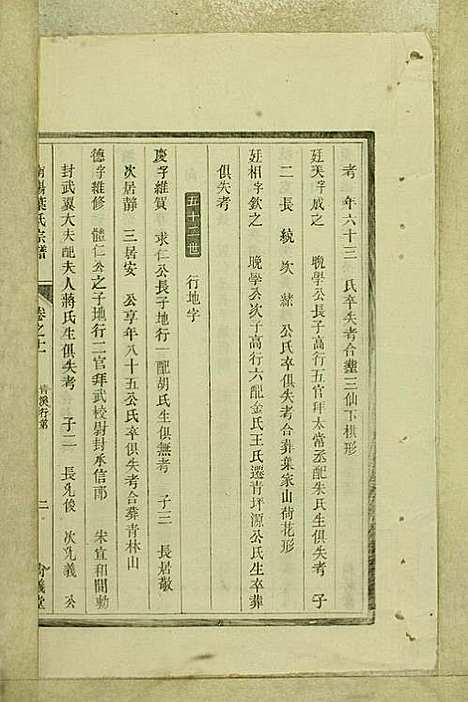 考 年六十三 氏卒失考合塟三仙下棋形
廷美字成之 晚學公長子高行五官拜太常丞配朱氏生俱失考 子
二 長統 次緒 公氏卒俱失考合葬葉家山荷花形
廷相字欽之 晚學公次子高行六配金氏王氏遷青坪源公氏生卒葬
俱失考
五十二世 行地字
慶字維賀 求仁公長子地行一配胡氏生俱無考 子三 長居敬
次居靜 三居安 公享年八十五公氏卒俱失考合葬青林山
德字維修 體仁公之子地行二官拜武校尉封承信郎 宋宣和間勅
封武翼大夫配夫人蔣氏生俱失考 子二 長先俊 次先義 公
南陽葉氏宗譜 卷之十一 青溪行第 二 義堂